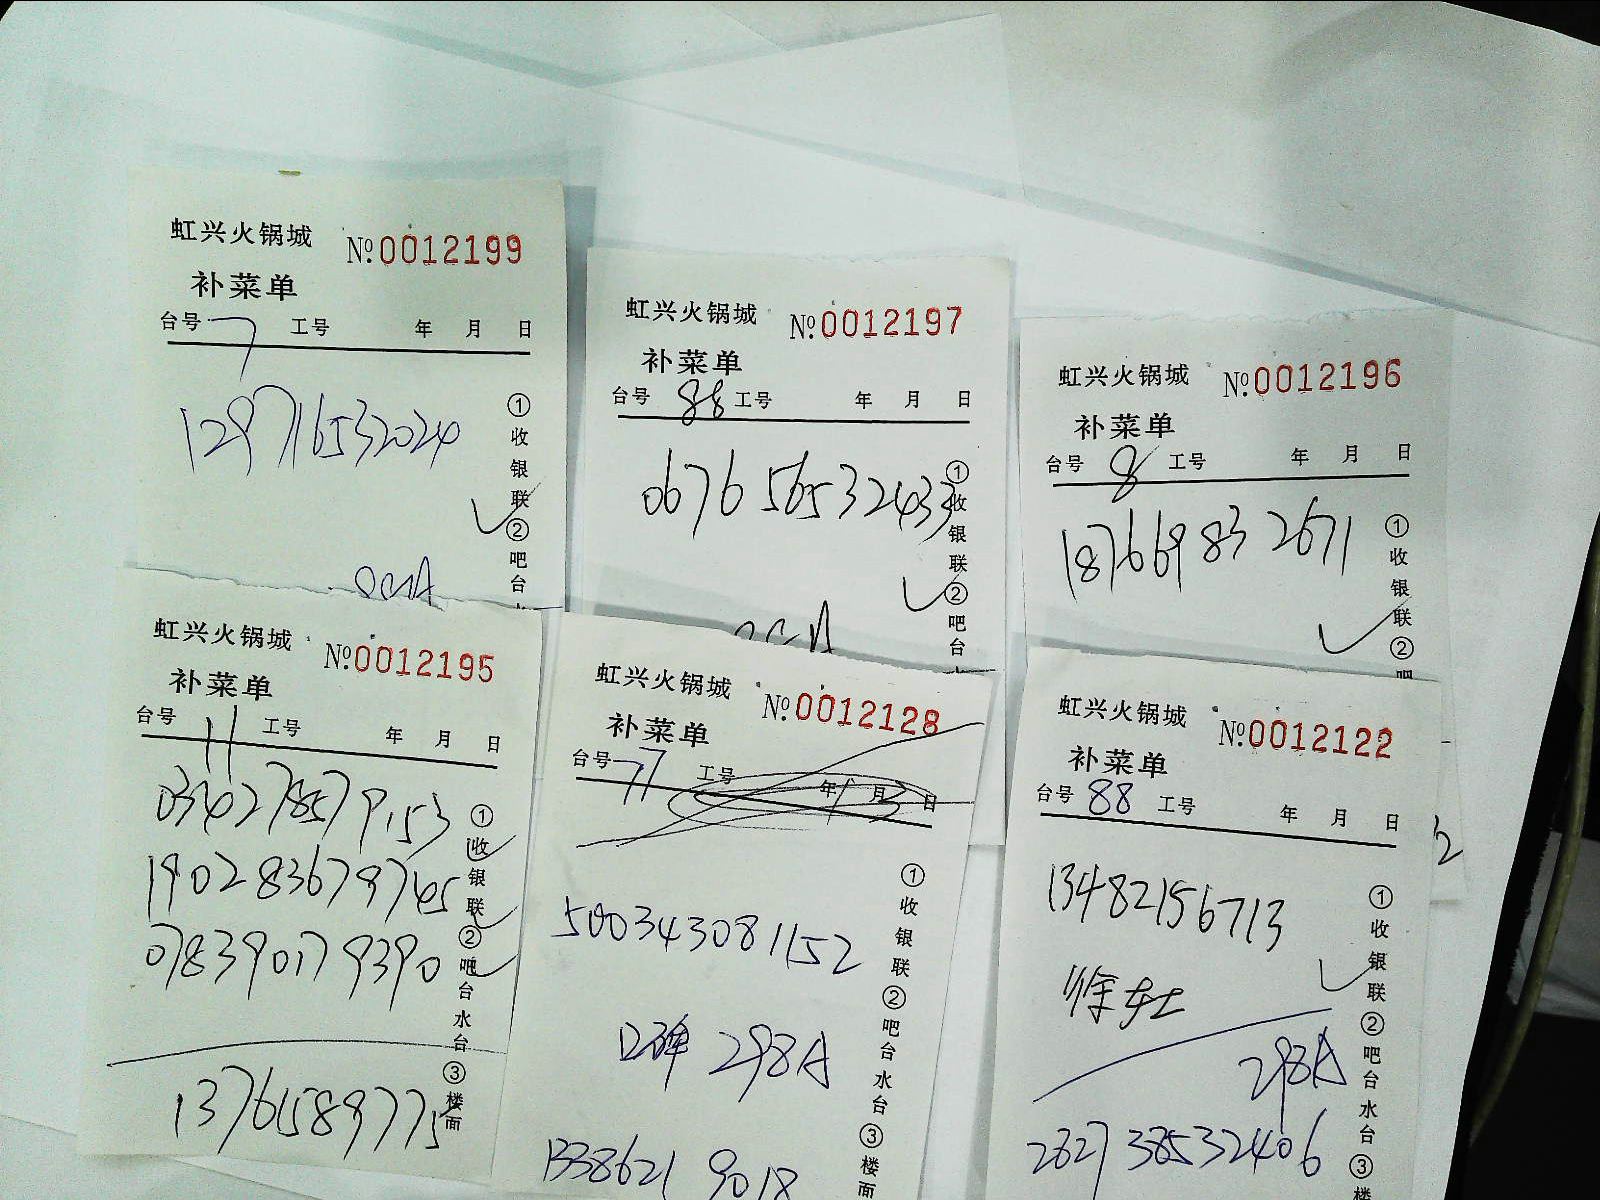 虹兴火锅城 №0012199
补菜单
台号 7 工号 年 月 日
129716532024
①收银联②吧台
虹兴火锅城 №0012197
补菜单
台号 88 工号 年 月 日
067656532433
①收银联②吧台
虹兴火锅城 №0012196
补菜单
台号 8 工号 年 月 日
187669832671
①收银联②吧
虹兴火锅城 №0012195
补菜单
台号 11 工号 年 月 日
034278579153
190283679745
078390179390
13761589775
①收银联②吧台水台③楼面
虹兴火锅城 №0012128
补菜单
台号 77 工号 年 1 月 3 日
500343081152
298A
13386219018
①收银联②吧台水台③楼面
虹兴火锅城 №0012122
补菜单
台号 88 工号 年 月 日
13482156713
298A
262738532406
①收银联②吧台水台③楼